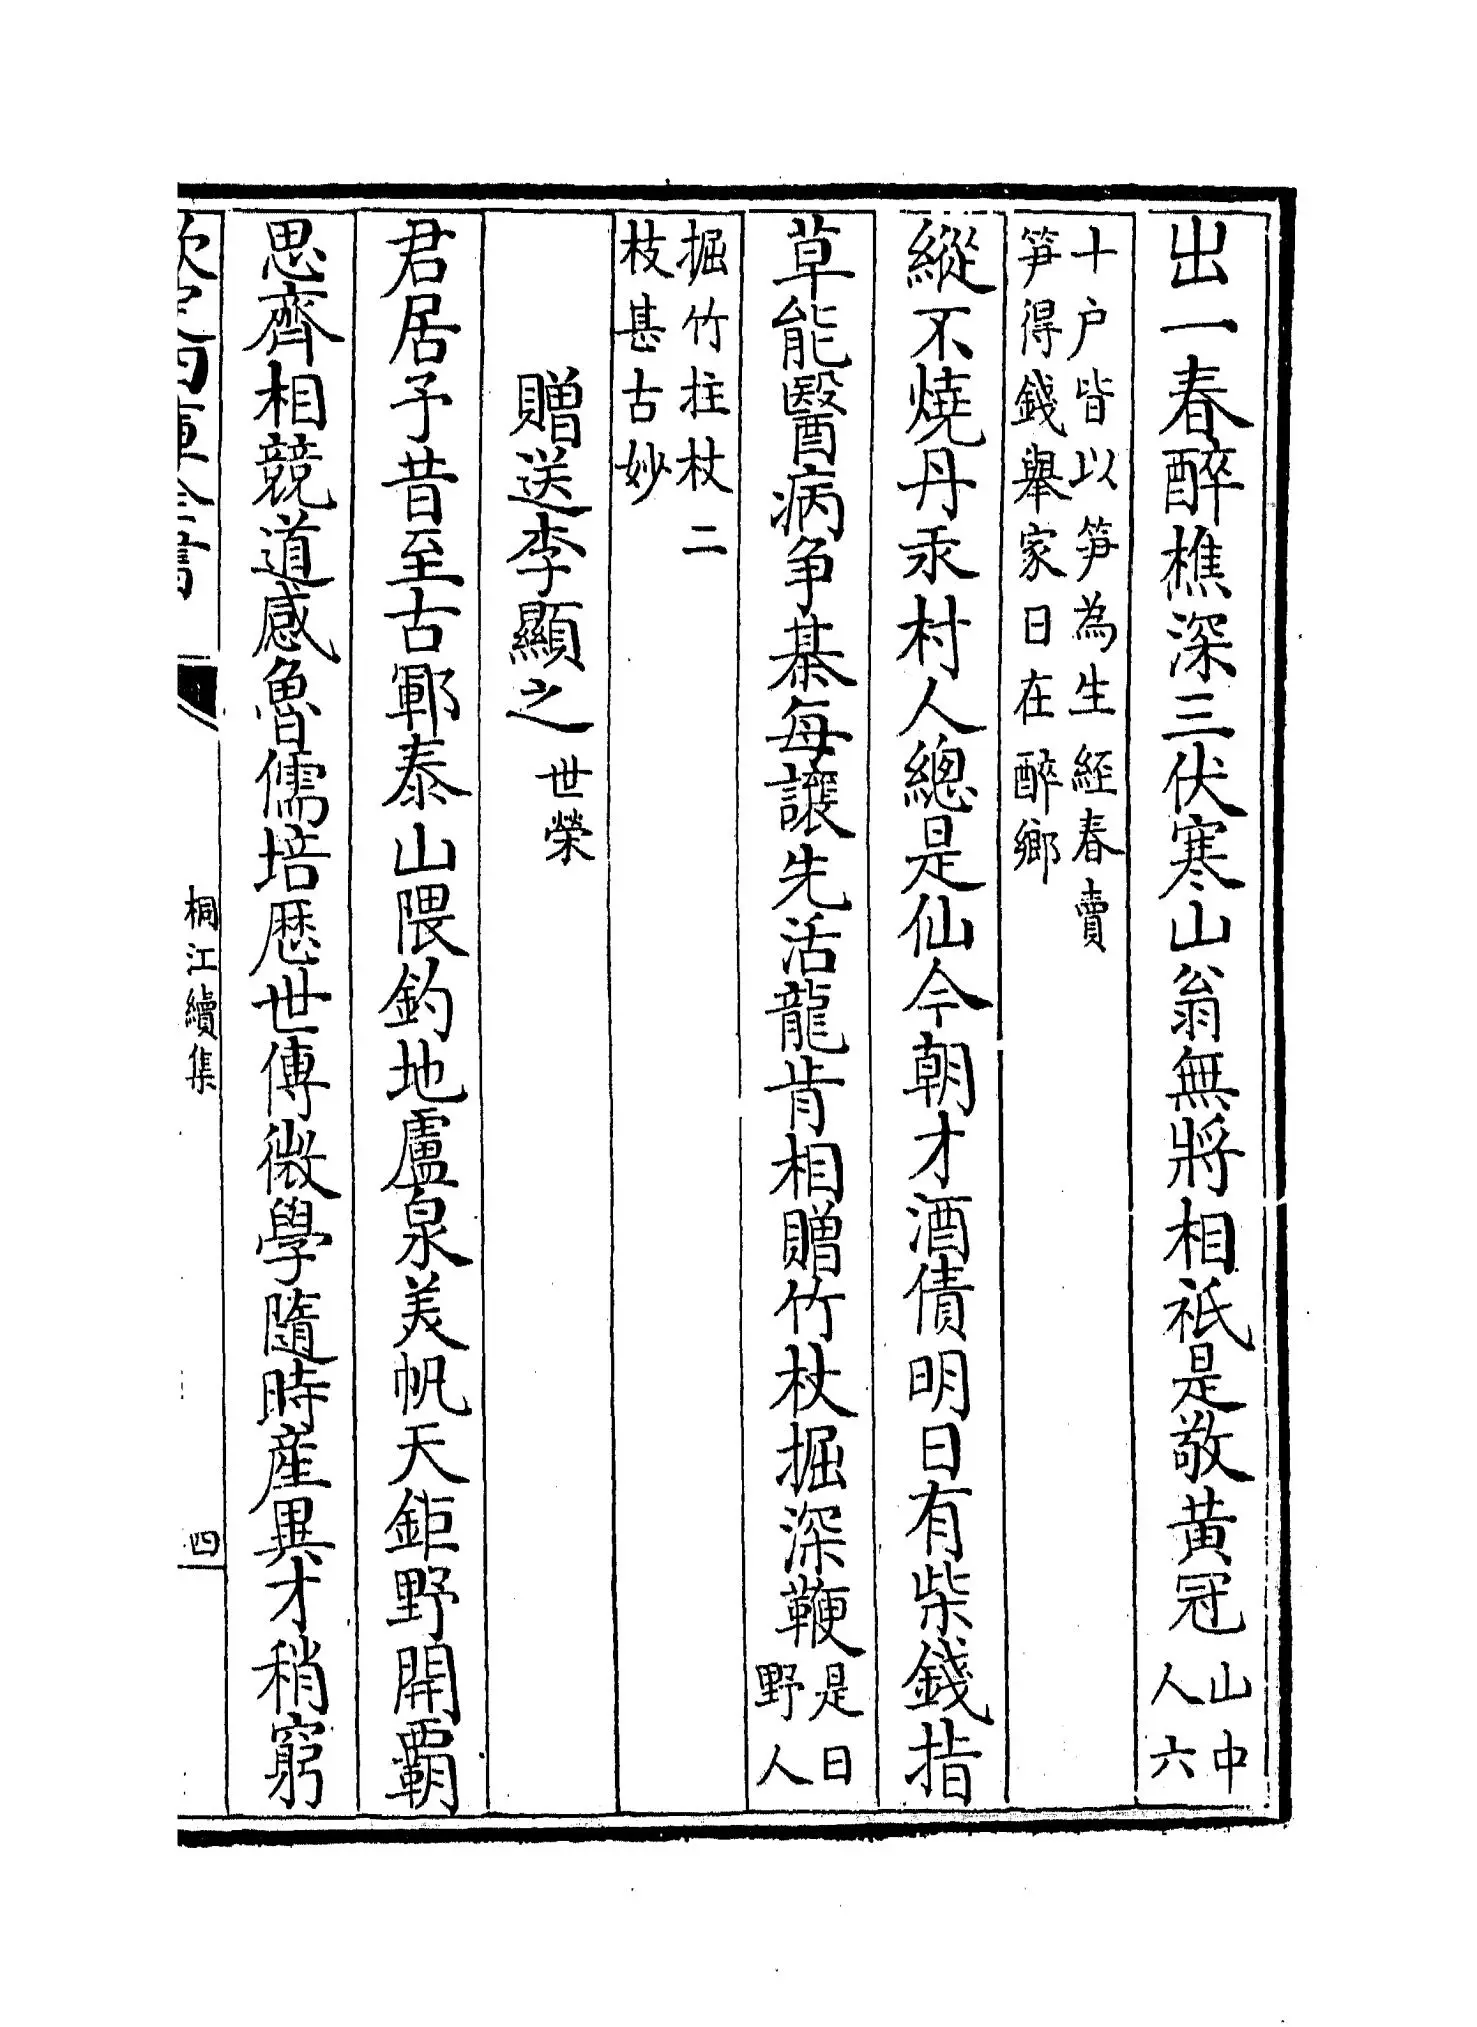 出一春醉樵深三伏寒山翁無將相祇是敬黃冠山中人六
十户皆以笋為生經春賣
笋得錢舉家日在醉鄉
縱不燒丹汞村人總是仙今朝才酒債明日有柴錢指
草能醫病争棊每讓先活龍肯相贈竹杖掘深鞭是日野人
掘竹拄杖二
枝甚古妙
贈送李顯之世榮
君居予昔至古鄆泰山隈釣地盧泉美帆天鉅野開覇
思齊相競道感魯儒培歴世傳微學隨時産異才稍窮
欽定四庫全書
桐江續集
四